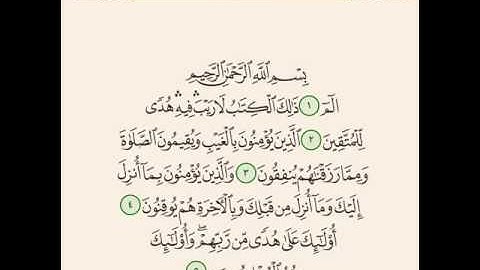 بِسْمِ ٱللَّهِ ٱلرَّحْمَٰنِ ٱلرَّحِيمِ
الٓمٓ ١ ذَٰلِكَ ٱلْكِتَٰبُ لَا رَيْبَ ۛ فِيهِ ۛ هُدًى
لِّلْمُتَّقِينَ ٢ ٱلَّذِينَ يُؤْمِنُونَ بِٱلْغَيْبِ وَيُقِيمُونَ ٱلصَّلَوٰةَ
وَمِمَّا رَزَقْنَٰهُمْ يُنفِقُونَ ٣ وَٱلَّذِينَ يُؤْمِنُونَ بِمَآ أُنزِلَ
إِلَيْكَ وَمَآ أُنزِلَ مِن قَبْلِكَ وَبِٱلْءَاخِرَةِ هُمْ يُوقِنُونَ ٤
أُو۟لَٰٓئِكَ عَلَىٰ هُدًى مِّن رَّبِّهِمْ ۖ وَأُو۟لَٰٓئِكَ